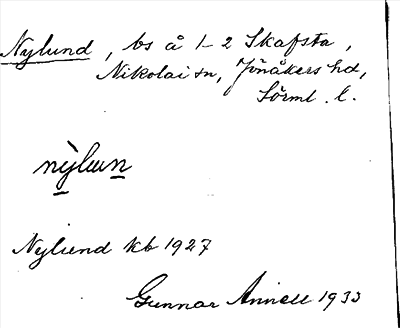 Nylund, bs å 1-2 Skafsta,
Nikolai sn, Jönåkers hd,
Sörml. l.
nỳlɯn
Nylund kb 1927
Gunnar Annell 1933